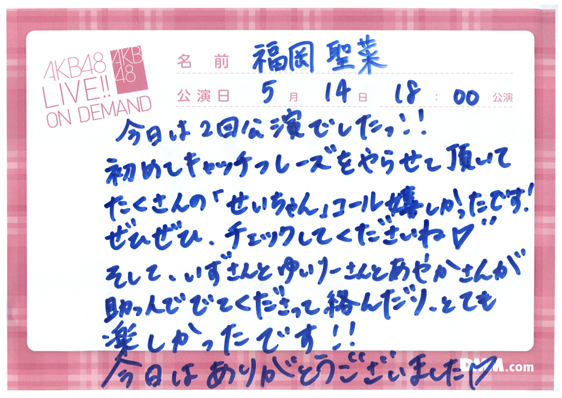 AKB48
LIVE!!
ON DEMAND
AKB
48
名前 福岡 聖菜
公演日 5月 14日 18:00 公演
今日は2回公演でしたっ!!
初めてキャッチフレーズをやらせて頂いて
たくさんの「せいちゃん」コール嬉しかったです!
ぜひぜひ、チェックしてくださいね♡
そして、いずさんとゆいりーさんとあやかさんが
助っ人ででてくださって絡んだり、とても
楽しかったです!!
今日はありがとうございました♡
DMM.com